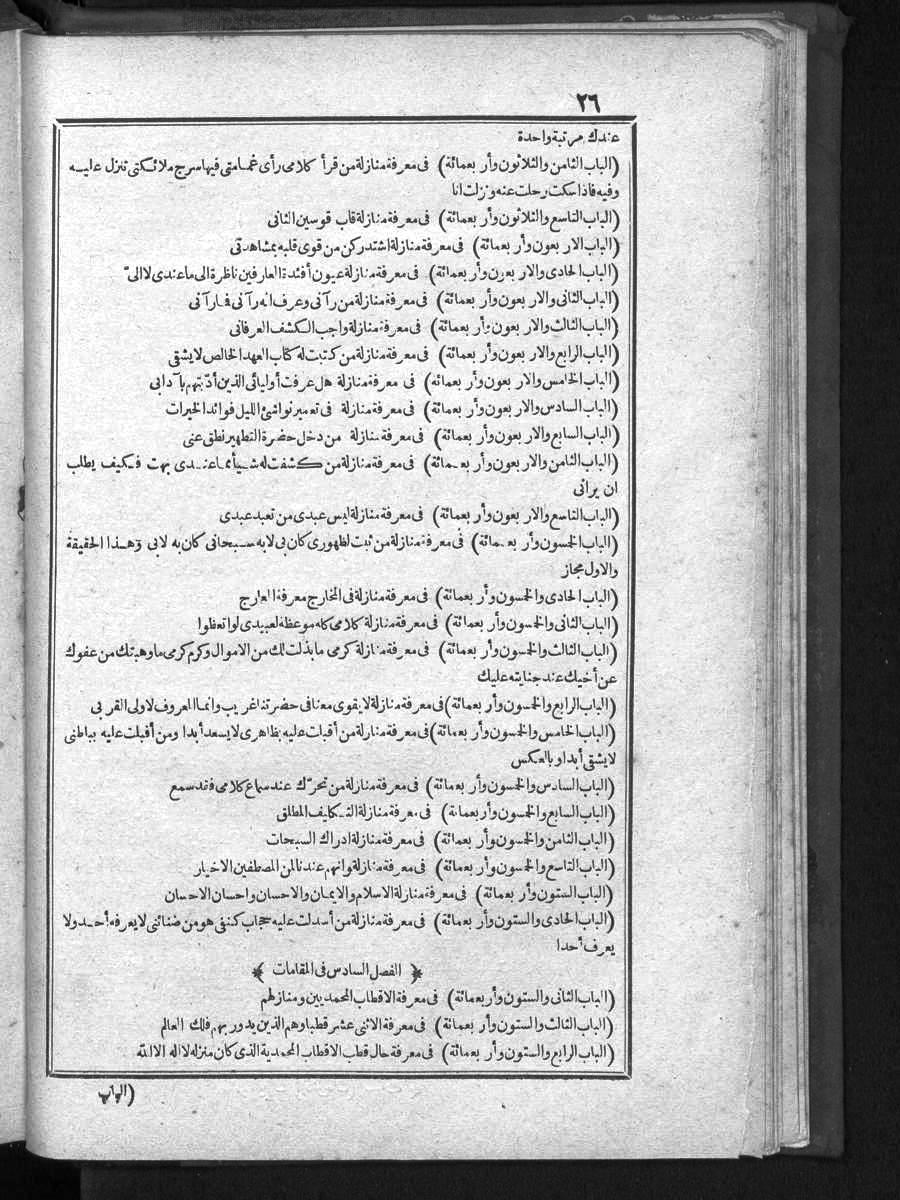 ٢٦
عندك مرتبة واحدة
(الباب الثامن والثلاثون وأربعمائة) فى معرفة منازلة من قرأ كلامى رأى غمامتى فيها سرج ملائكتى تنزل عليه
وفيه فاذا سكت رحلت عنه ونزلت انا
(الباب التاسع والثلاثون وأربعمائة) فى معرفة منازلة قاب قوسين الثانى
(الباب الاربعون وأربعمائة) فى معرفة منازلة اشتد ركن من قوى قلبه بمشاهدتى
(الباب الحادى والاربعون وأربعمائة) فى معرفة منازلة عيون أفئدة العارفين ناظرة الى ما عندى لا الىّ
(الباب الثانى والاربعون وأربعمائة) فى معرفة منازلة من رآنى وعرف انه رآنى فما رآنى
(الباب الثالث والاربعون وأربعمائة) فى معرفة منازلة واجب الكشف العرفانى
(الباب الرابع والاربعون وأربعمائة) فى معرفة منازلة من كتبت له كتاب العهد الخالص لا يشقى
(الباب الخامس والاربعون وأربعمائة) فى معرفة منازلة هل عرفت أوليائى الذين أدّبتهم بآدابى
(الباب السادس والاربعون وأربعمائة) فى معرفة منازلة فى تعمير نواشئ الليل فوائد الخيرات
(الباب السابع والاربعون وأربعمائة) فى معرفة منازلة من دخل حضرة التطهير نطق عنى
(الباب الثامن والاربعون وأربعمائة) فى معرفة منازلة من كشفت له شيأ مما عندى بهت فكيف يطلب
ان يرانى
(الباب التاسع والاربعون وأربعمائة) فى معرفة منازلة ليس عبدى من تعبد عبدى
(الباب الخمسون وأربعمائة) فى معرفة منازلة من ثبت لظهورى كان بى لا به سبحانى كان به لا بى وهذا الحقيقة
والاول مجاز
(الباب الحادى والخمسون وأربعمائة) فى معرفة منازلة فى المخارج معرفة المعارج
(الباب الثانى والخمسون وأربعمائة) فى معرفة منازلة كلامى كله موعظة لعبيدى لو اتعظوا
(الباب الثالث والخمسون وأربعمائة) فى معرفة منازلة كرمى ما بذلت لك من الاموال وكرم كرمى ما وهبتك من عفوك
عن أخيك عند جنايته عليك
(الباب الرابع والخمسون وأربعمائة) فى معرفة منازلة لا يقوى معنا فى حضرتنا غريب وانما المعروف لاولى القربى
(الباب الخامس والخمسون وأربعمائة) فى معرفة منازلة من أقبلت عليه بظاهرى لا يسعد أبدا ومن أقبلت عليه بباطنى
لا يشقى أبدا وبالعكس
(الباب السادس والخمسون وأربعمائة) فى معرفة منازلة من تحرّك عند سماع كلامى فقد سمع
(الباب السابع والخمسون وأربعمائة) فى معرفة منازلة التكليف المطلق
(الباب الثامن والخمسون وأربعمائة) فى معرفة منازلة ادراك السبحات
(الباب التاسع والخمسون وأربعمائة) فى معرفة منازلة وانهم عندنا لمن المصطفين الاخيار
(الباب الستون وأربعمائة) فى معرفة منازلة الاسلام والايمان والاحسان واحسان الاحسان
(الباب الحادى والستون وأربعمائة) فى معرفة منازلة من أسدلت عليه حجاب كنفى هو من ضنائنى لا يعرفه أحد ولا
يعرف أحدا
﴿ الفصل السادس فى المقامات ﴾
(الباب الثانى والستون وأربعمائة) فى معرفة الاقطاب المحمديين ومنازلهم
(الباب الثالث والستون وأربعمائة) فى معرفة الاثنى عشر قطبا وهم الذين يدور بهم فلك العالم
(الباب الرابع والستون وأربعمائة) فى معرفة حال قطب الاقطاب المحمدية الذى كان منزله لا اله الا الله
(الباب